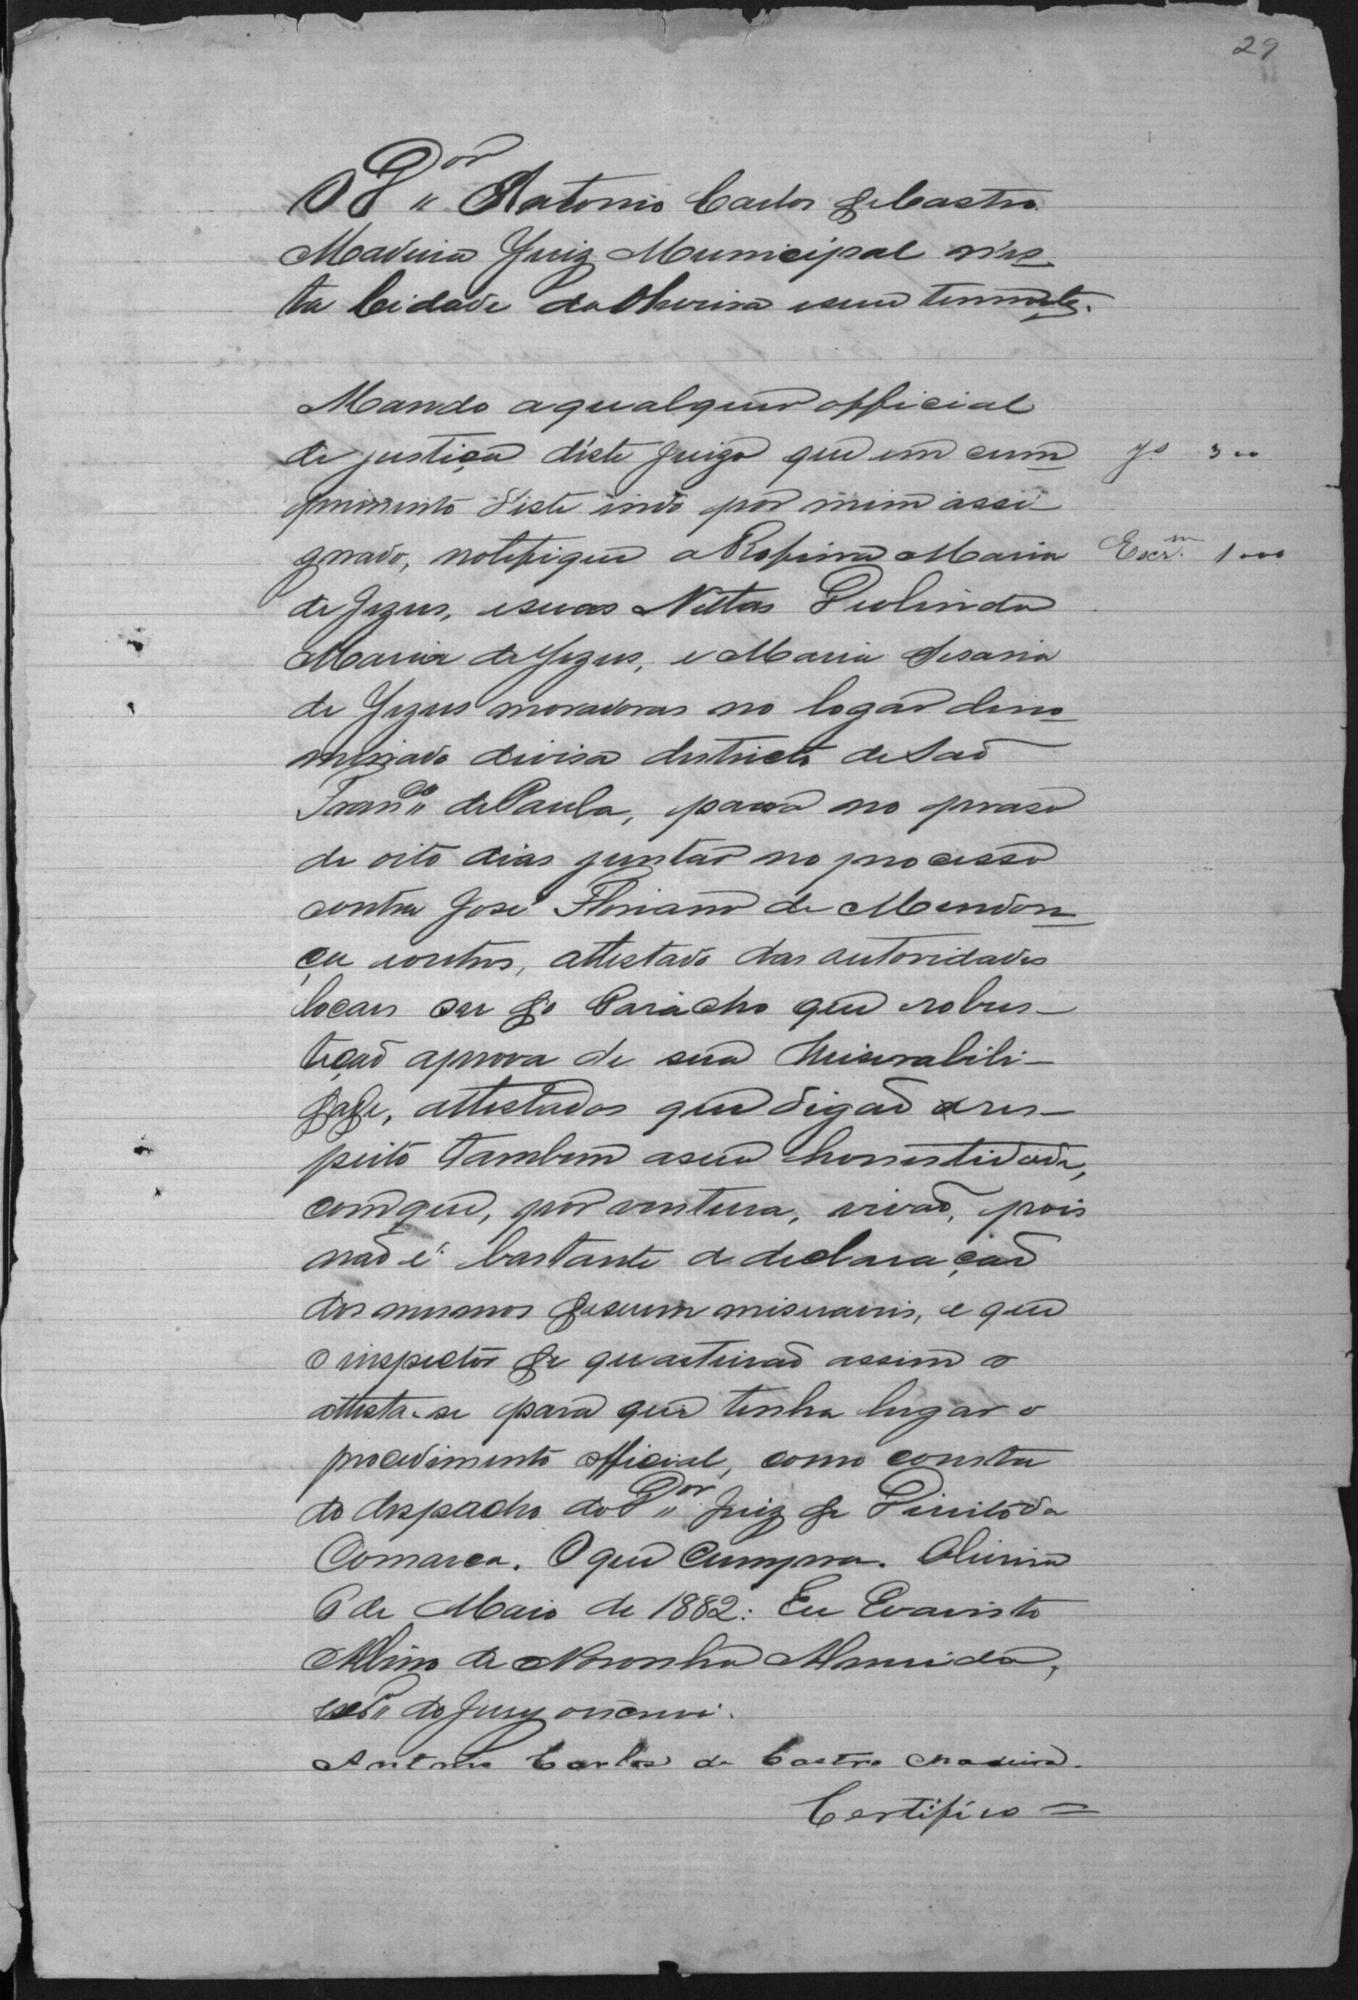 29
O D.or Antonio Carlos de Castro
Madeira Juiz Municipal n'es-
ta Cidade da Oliveira e seu termo etc.
Mando a qualquer official
de justiça d'este Juizo que em cum-
J.o 300
primento d'este indo por mim assi-
gnado, notifique a Rofina Maria
Escr.m 1000
de Jezus, e suas Nettas Deolinda
Maria de Jezus, e Maria Cesaria
de Jezus moradoras no logar deno-
minado divisa districto de São
Fran.co de Paula, para no praso
de oito dias juntar no processo
contra José Floriano de Mendon-
ça e outros, attestado das autoridades
locaes ou do Parocho que robus-
teção a prova de sua miserabili-
dade, attestados que digão a res-
peito tambem a sua honestidade,
com que, por ventura, vivão, pois
não é bastante a declaração
dos mesmos de serem miseraveis, e que
o inspector de quarteirão assim o
attesta-se para que tenha lugar o
procedimento official, como consta
do despacho do D.or Juiz de Direito da
Comarca. O que cumpra. Oliveira
6 de Maio de 1882: Eu Evaristo
Albino de Noronha Almeida,
do Jury o escrevi.
Antonio Carlos de Castro Madeira.
Certifico =